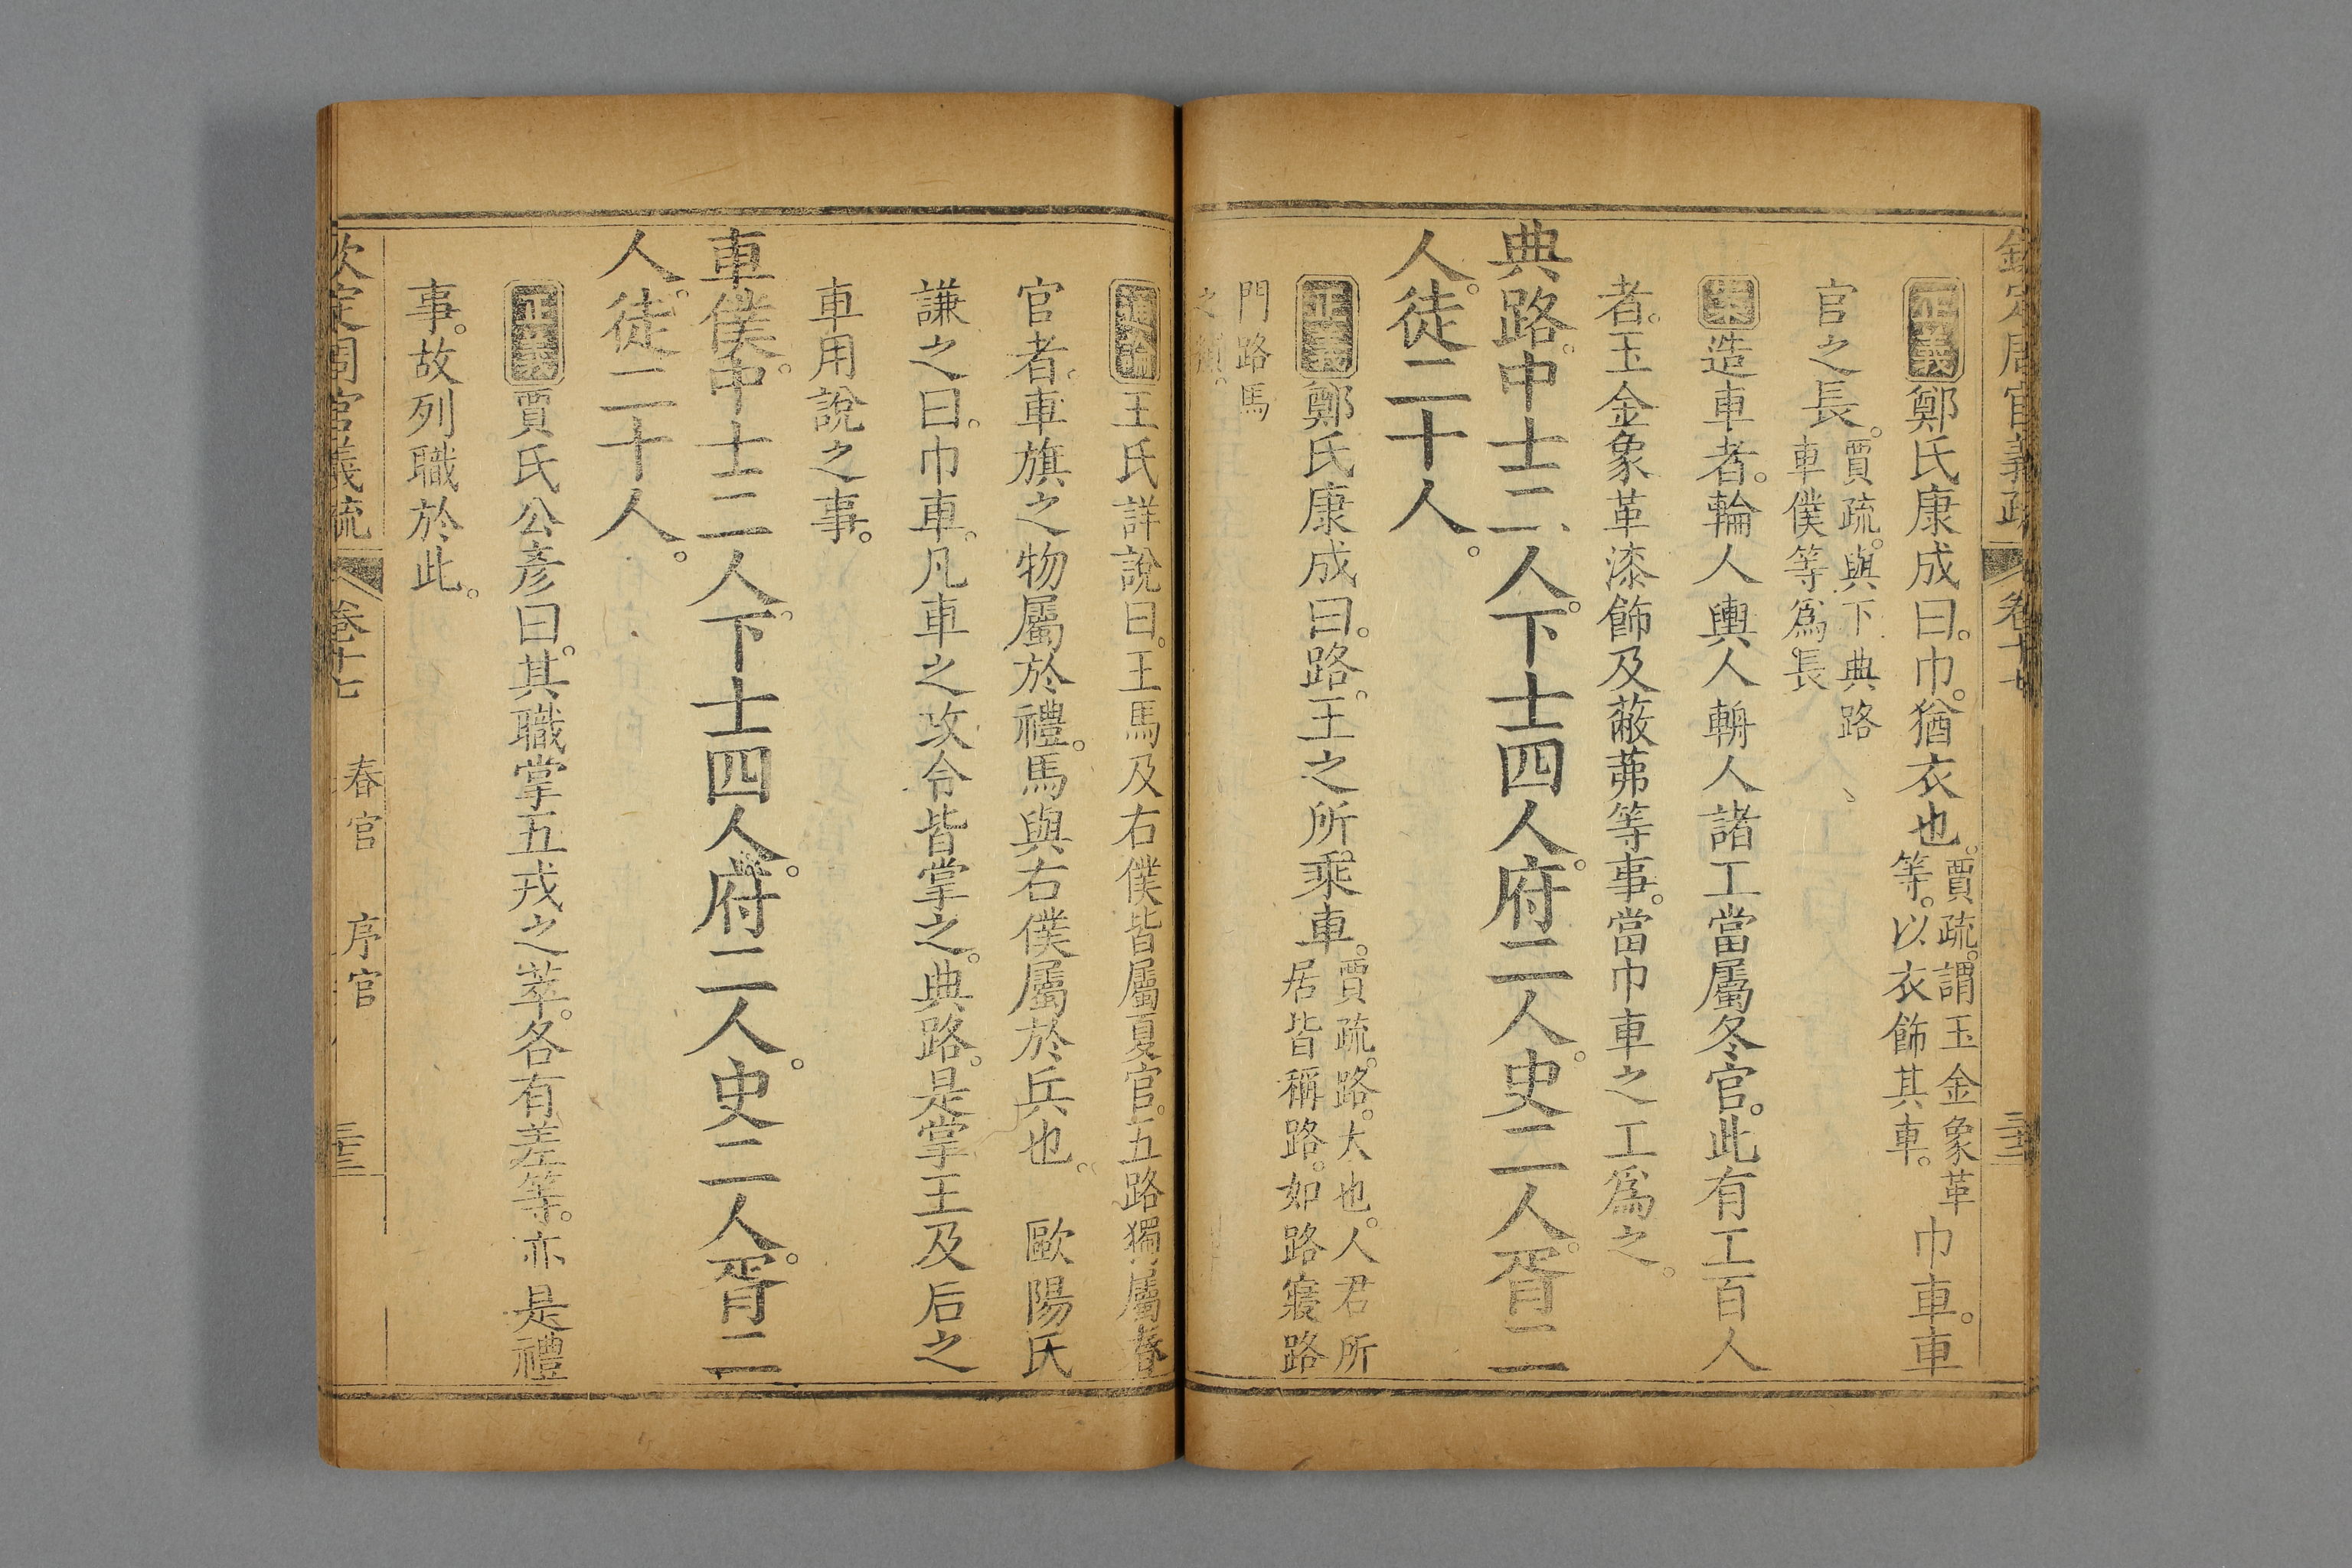 欽定周官義疏 卷十七 三十三
正義鄭氏康成曰。巾。猶衣也。賈疏。謂玉金象革等。以衣飾其車。巾車。車
官之長。賈疏。與下典路車僕等爲長
案造車者。輪人輿人輈人諸工當屬冬官。此有工百人
者。玉金象革漆飾及蔽茀等事。當巾車之工爲之。
典路。中士二人。下士四人。府二人。史二人。胥二
人。徒二十人。
正義鄭氏康成曰。路。王之所乘車。賈疏。路。大也。人君所居皆稱路。如路寢路
門路馬之類。
通論王氏詳說曰。王馬及右僕皆屬夏官。五路獨屬春
官者。車旗之物屬於禮。馬與右僕屬於兵也。 歐陽氏
謙之曰。巾車。凡車之攻令皆掌之。典路。是掌王及后之
車用說之事。
車僕。中士二人。下士四人。府二人。史二人。胥二
人。徒二十人。
正義賈氏公彥曰。其職掌五戎之萃。各有差等。亦是禮
事。故列職於此。
欽定周官義疏 卷十七 春官 序官 三十三